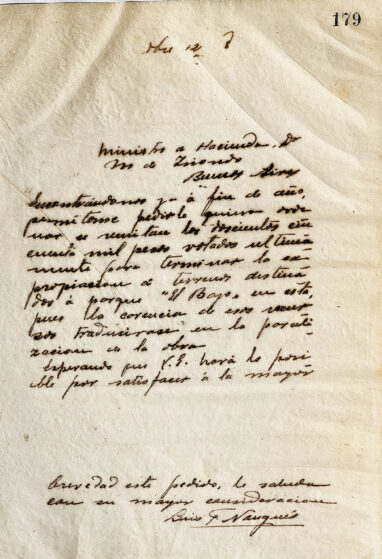 179
Dbre 12
Ministro de Hacienda, Dr
M. de Iriondo
Buenos Aires
Encontrándonos ya á fin de año,
permítome pedirle quiera orde
nar se remitan los doscientos cin
cuenta mil pesos votados ultima
mente para terminar la ex
propiacion de terrenos destina
dos á parque "El Bajo" en esta,
pues la carencia de esos recur
sos traduciráse en la parali
zacion de la obra
Esperando que V.E. hará lo posi
ble por satisfacer á la mayor
brevedad este pedido, le saluda
con su mayor consideracion
Luis F. Nougués